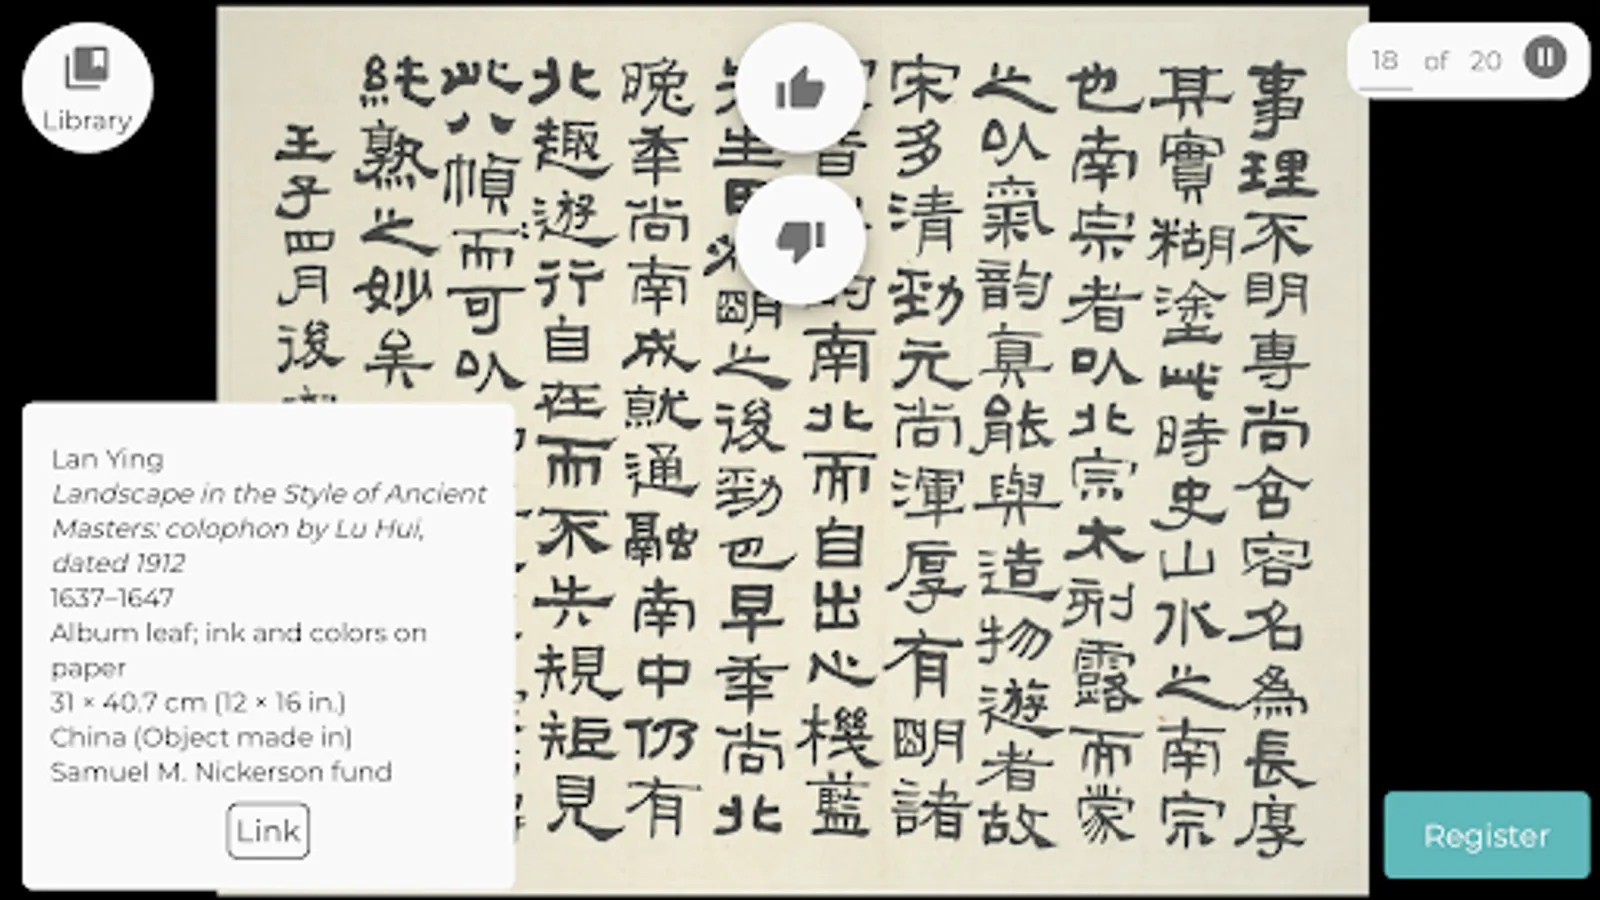 Library
18 of 20
事理不明専尚含容名為長厚
其實糊塗此時史山水之南宗
也南宗者以北宗太刻露而蒙
之以氣韵真能與造物遊者故
宋多清勁元尚渾厚有明諸
南北而自出心機藍
生田明之後勁也早年尚北
晚年尚南成就通融南中仍有
北趣遊行自在而不失規矩見
此八幀而可以
純熟之妙矣
王子四月後
Lan Ying
Landscape in the Style of Ancient
Masters: colophon by Lu Hui,
dated 1912
1637–1647
Album leaf; ink and colors on
paper
31 × 40.7 cm (12 × 16 in.)
China (Object made in)
Samuel M. Nickerson fund
Link
Register